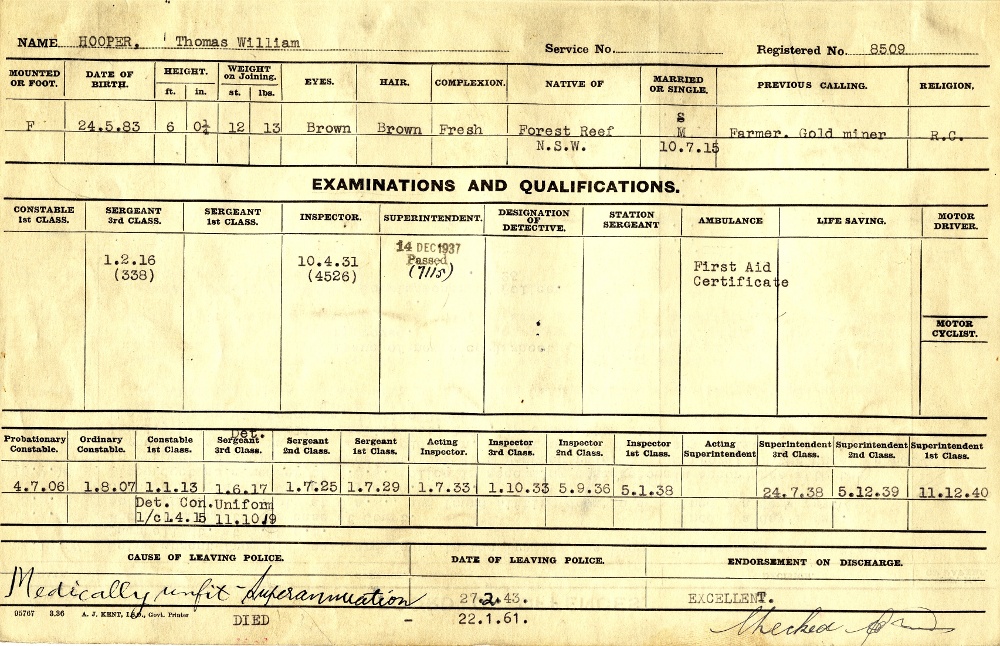 NAME HOOPER, Thomas William Service No. Registered No. 8509
MOUNTED OR FOOT. DATE OF BIRTH. HEIGHT. ft. in. WEIGHT on Joining. st. lbs. EYES. HAIR. COMPLEXION. NATIVE OF MARRIED OR SINGLE. PREVIOUS CALLING. RELIGION.
S
F 24.5.83 6 0¼ 12 13 Brown Brown Fresh Forest Reef M Farmer. Gold miner R.C.
N.S.W. 10.7.15
EXAMINATIONS AND QUALIFICATIONS.
CONSTABLE 1st CLASS. SERGEANT 3rd CLASS. SERGEANT 1st CLASS. INSPECTOR. SUPERINTENDENT. DESIGNATION OF DETECTIVE. STATION SERGEANT AMBULANCE LIFE SAVING. MOTOR DRIVER.
14 DEC 1937
1.2.16 10.4.31 Passed First Aid
(338) (4526) (7115) Certificate
MOTOR CYCLIST.
Det.
Probationary Constable. Ordinary Constable. Constable 1st Class. Sergeant 3rd Class. Sergeant 2nd Class. Sergeant 1st Class. Acting Inspector. Inspector 3rd Class. Inspector 2nd Class. Inspector 1st Class. Acting Superintendent Superintendent 3rd Class. Superintendent 2nd Class. Superintendent 1st Class.
4.7.06 1.8.07 1.1.13 1.6.17 1.7.25 1.7.29 1.7.33 1.10.33 5.9.36 5.1.38 24.7.38 5.12.39 11.12.40
Det. Con. Uniform
1/c 1.4.15 11.10.19
CAUSE OF LEAVING POLICE. DATE OF LEAVING POLICE. ENDORSEMENT ON DISCHARGE.
Medically unfit - Superannuation 27.2.43. EXCELLENT.
05767 3.36 A. J. KENT, I.S.O., Govt. Printer
DIED - 22.1.61.
Checked